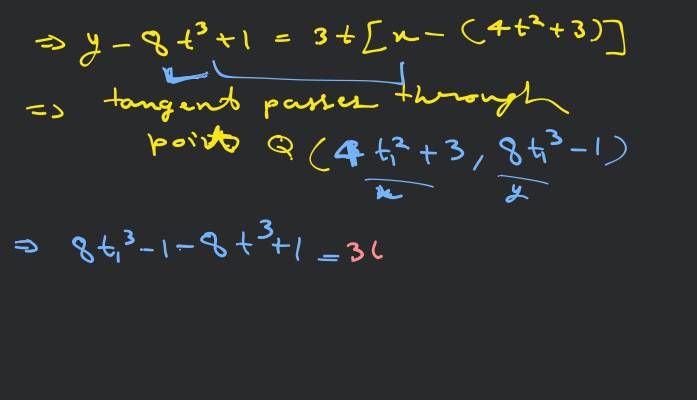 ⇒ y - 8t³ + 1 = 3t[x - (4t² + 3)]
⇒ tangent passes through
point Q (4t₁² + 3, 8t₁³ - 1)
x y
⇒ 8t₁³ - 1 - 8t³ + 1 = 3(